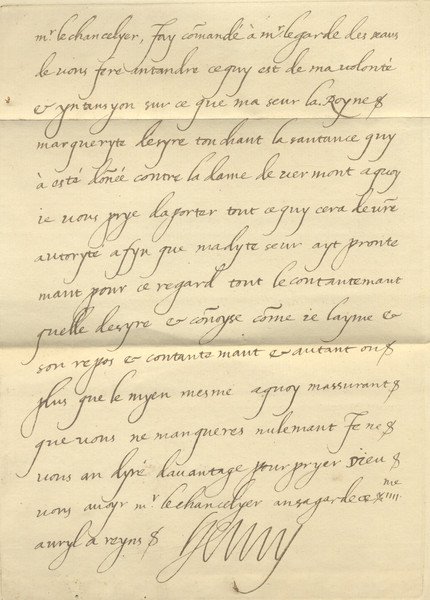 mr le chancelyer, J'ay comãdé à mr le garde des seaus
de vous fere antandre ce quy est de ma volonté
& yntansyon sur ce que ma seur la Royne
margueryte desyre touchant la santance quy
à esté donée contre la dame de vermont a quoy
ie vous prye daporter tout ce quy cera de vre
autoryté afyn que madyte seur ayt pronte
mant pour ce regard tout le contantemant
quelle desyre & conoyse cõme ie layme &
son repos & contantemant & autant ou
plus que le myen mesme a quoy massurant
que vous ne manqueres nulemant Je ne
vous an dyré davantage pour pryer Dieu
vous avoyr mr le chancelyer an sa garde ce xiiiime
avryl a reyns Henry